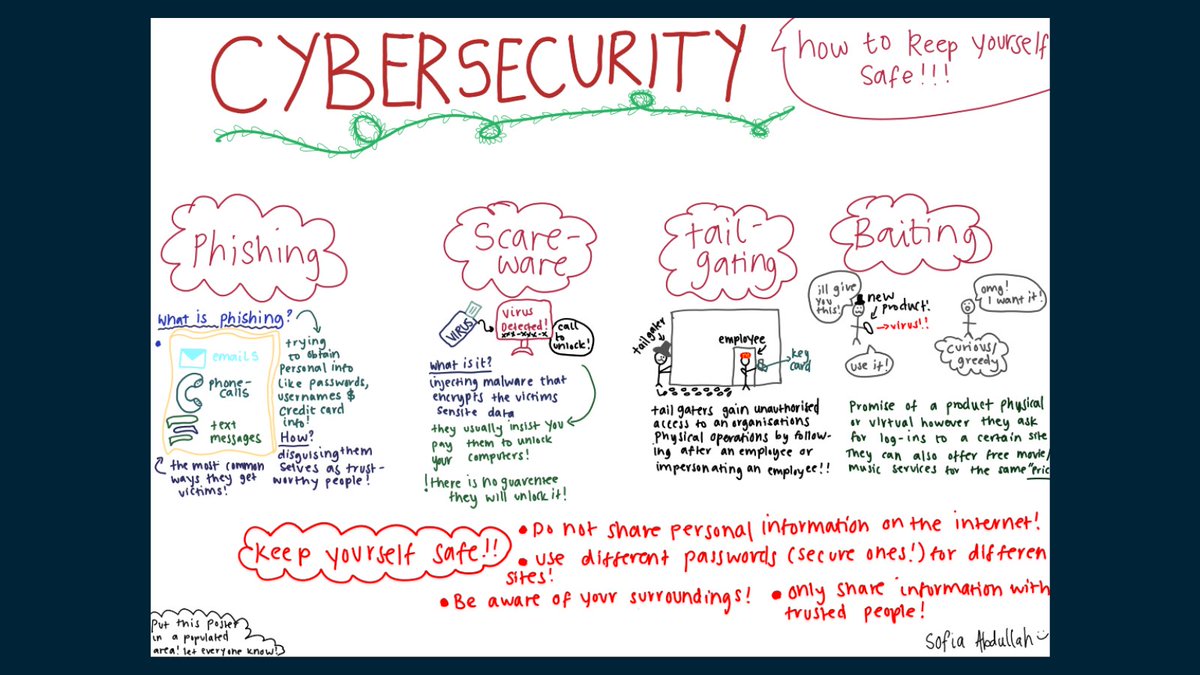 CYBERSECURITY
how to keep yourself
safe!!!
Phishing
what is phishing?
emails
phone-
calls
text
messages
the most common
ways they get
victims!
trying
to obtain
personal info
like passwords,
usernames &
credit card
info!
How?
disguising them
selves as trust-
worthy people!
Scare-
ware
VIRUS
virus
Detected!
xxx-xxxx-x
call
to
unlock!
what is it?
injecting malware that
encrypts the victims
sensite data
they usually insist you
pay them to unlock
your computers!
!there is no guarentee
they will unlock it!
tail-
gating
tailgater
employee
key
card
tail gaters gain unauthorised
access to an organisations
physical operations by follow-
ing after an employee or
impersonating an employee!!
Baiting
ill give
you
this!
new
product!
→virus!!
use it!
omg!
I want it!
curious/
greedy
Promise of a product physical
or virtual however they ask
for log-ins to a certain site
They can also offer free movie/
music services for the same "Pric
keep yourself safe!!
• Do not share personal information on the internet!
• use different passwords (secure ones!) for differen
sites!
• Be aware of your surroundings!
• only share information with
trusted people!
Put this poster
in a populated
area! let everyone know!
Sofia Abdullah